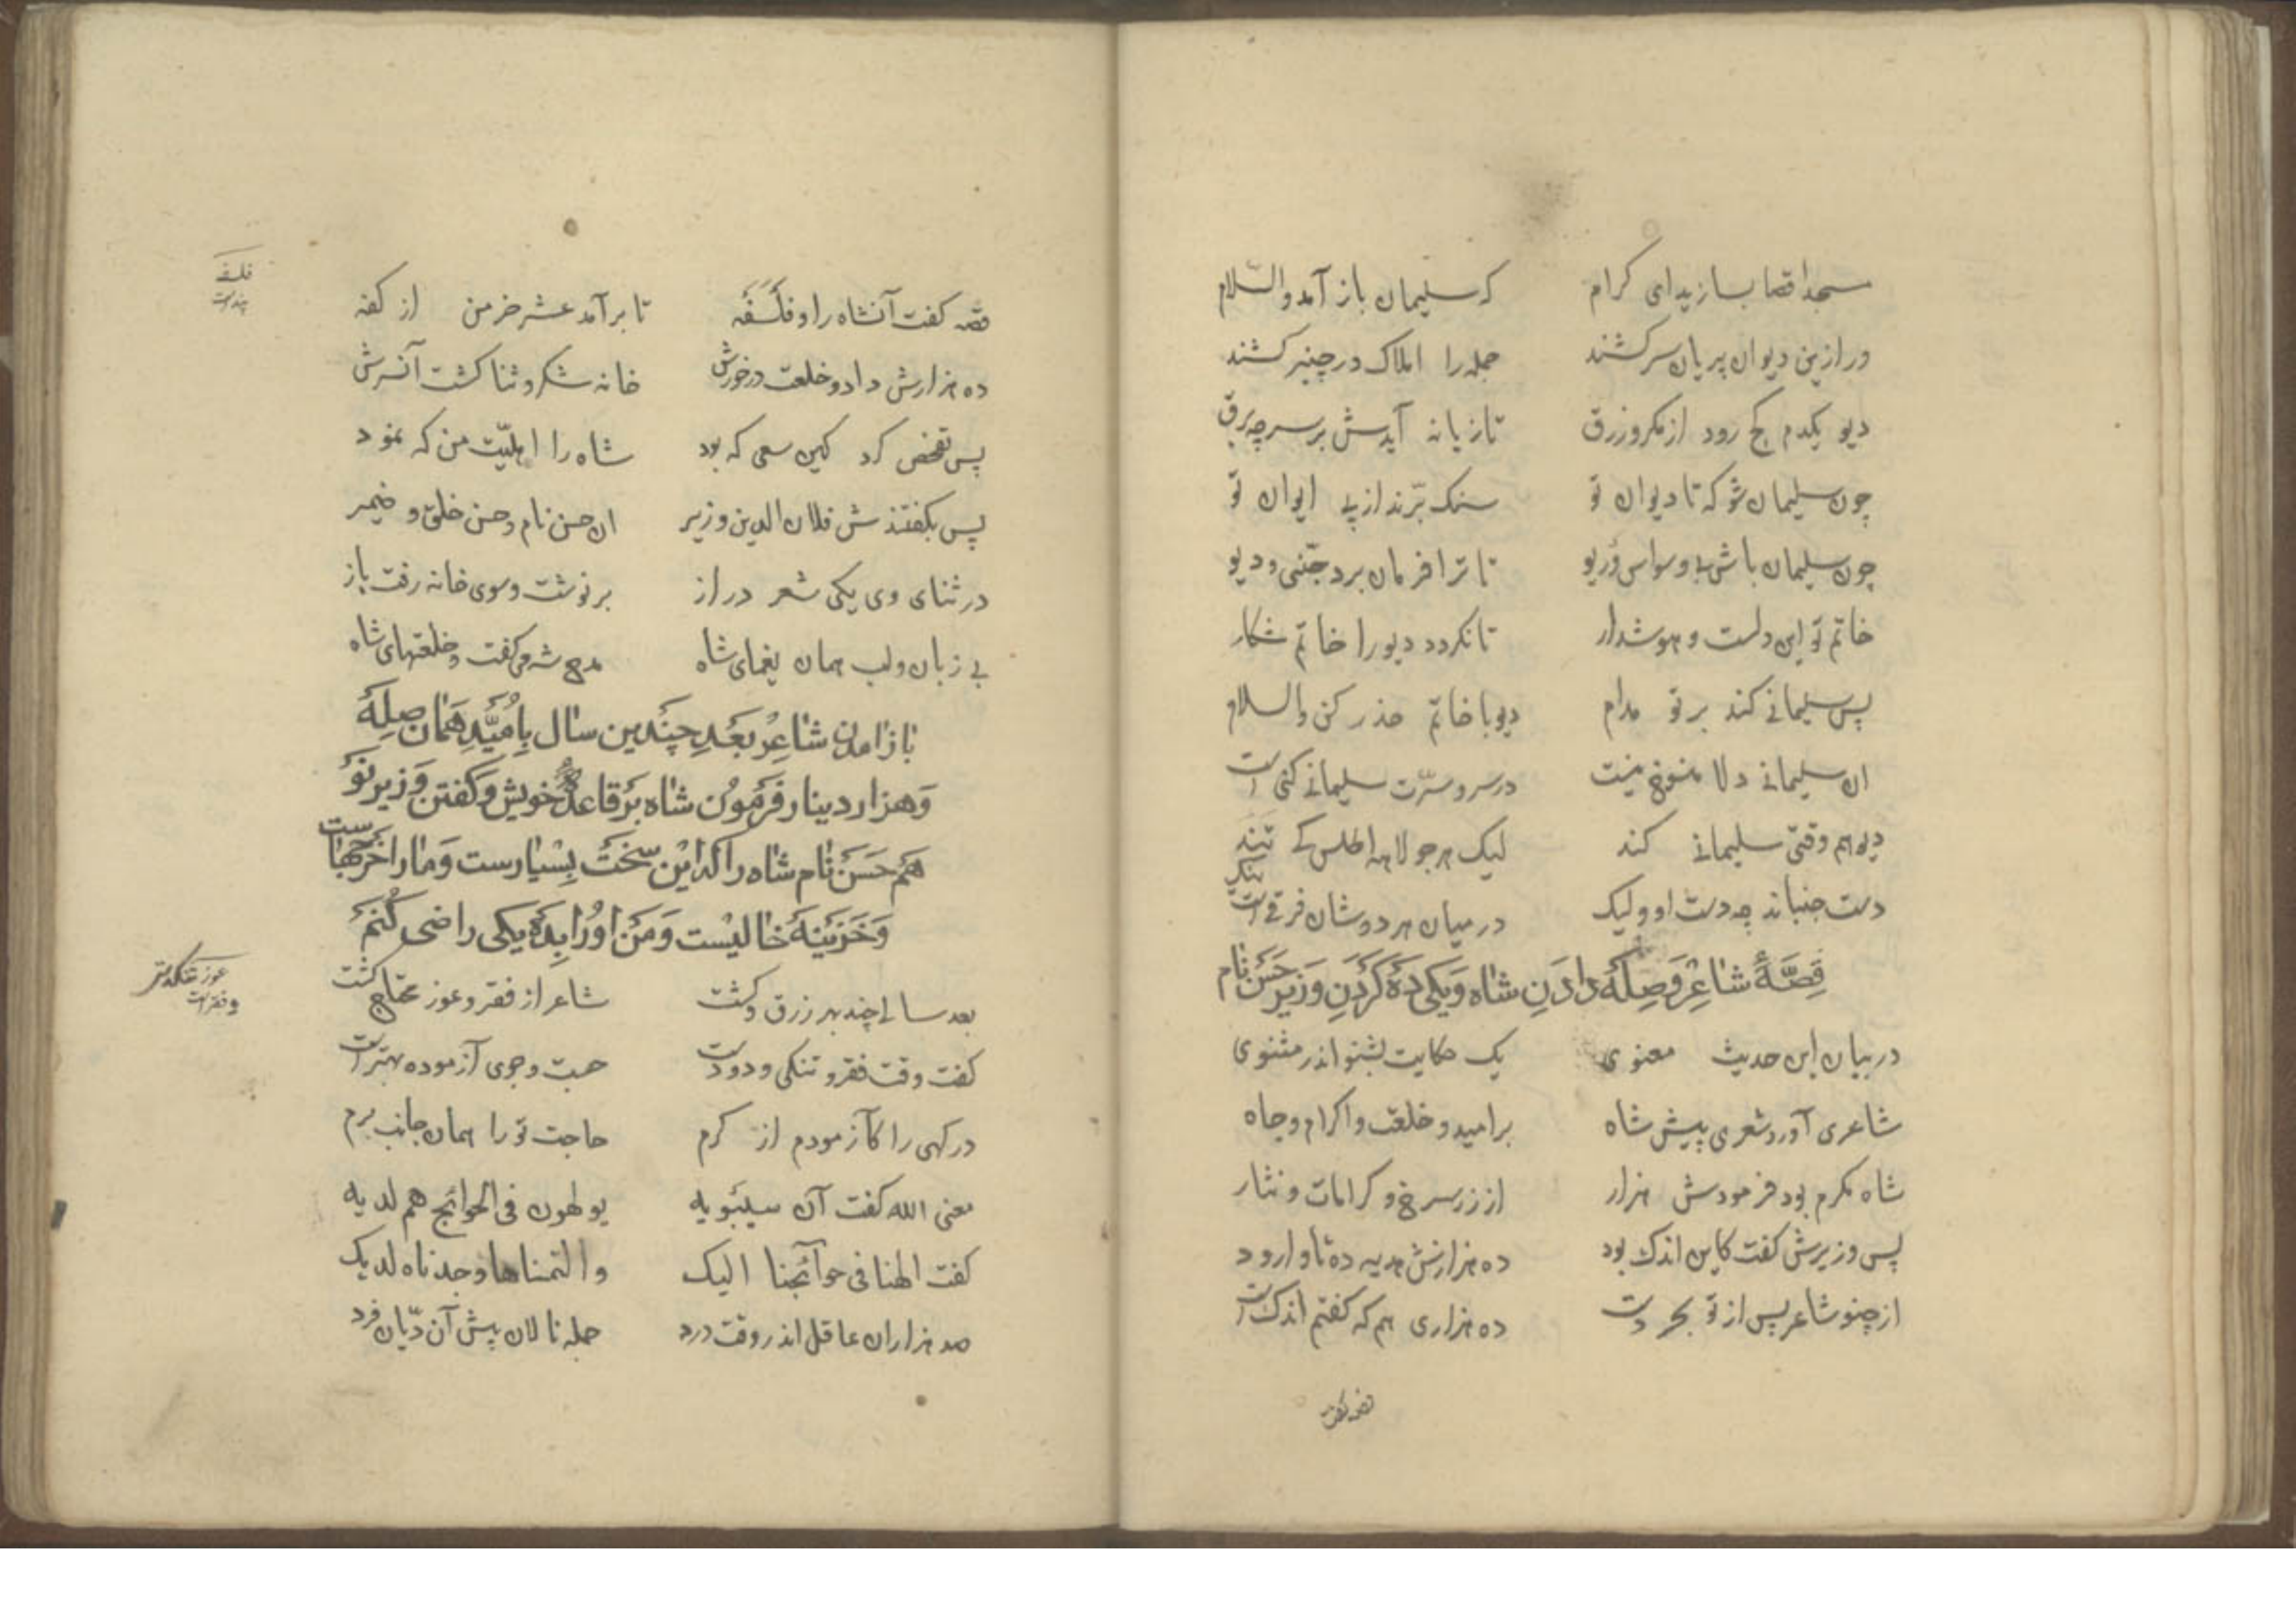 مسجد اقصا بسازید ای کرام که سلیمان باز آمد والسّلام
ور ازین دیوان پریان سر کشند جمله را املاک در چنبر کشند
دیو یکدم کج رود از مکر و زرق تازیانه آیدش بر سر چو برق
چون سلیمان شو که تا دیوان تو سنک برّند از پی ایوان تو
چون سلیمان باش بی وسواس و ریو تا ترا فرمان برد جنّی و دیو
خاتم تو این دلست و هوش دار تا نکردد دیو را خاتم شکار
پس سلیمانی کند بر تو مدام دیو با خاتم حذر کن والسلام
ان سلیمانی دلا منسوخ نیست در سر و سرّت سلیمانی کنی است
دیو هم وقتی سلیمانی کند لیک هر جولاهه اطلس کی تند
دست جنباند چو دست او ولیک در میان هر دوشان فرقیست نیک
قِصَّهٔ شاعِر وَ صِلَهٔ دادَنِ شاه وَ یکی دَه کَردَنِ وَزیر حَسَن نام
در بیان این حدیث معنوی یک حکایت بشنو اندر مثنوی
شاعری آورد شعری پیش شاه بر امید و خلعت و اکرام و جاه
شاه مکرم بود فرمودش هزار از زر سرخ و کرامات و نثار
پس وزیرش کفت کاین اندک بود ده هزارش هدیه ده تا وا رود
از چنو شاعر پس از تو بحر دست ده هزاری هم که کفتم اندکست
قصه کفت
قصّه کفت آنشاه را و فلسفه تا برآمد عشر خرمن از کفه
ده هزارش داد و خلعت در خورش خانه شکر و ثنا کشت آنسرش
پس تفحّص کرد کین سعی که بود شاه را اهلیّت من که نمود
پس بکفتندش فلان الدین وزیر ان حسن نام و حسن خلق و ضمیر
در ثنای وی یکی شعر دراز بر نوشت و سوی خانه رفت باز
بی زبان و لب همان نعمای شاه مدح شه می کفت و خلعتهای شاه
باز امدن شاعِر بَعدِ چَندین سال بِامُیّدِ هَمان صِلَه
وَ هزار دینار فَرمودن شاه بَر قاعدهٔ خویش و کفتن وَزیر نَو
هَم حَسَن نام شاه را که این سَخت بِسیارست وَ ما را خَرجهاست
وَ خَزینَه خالیست وَ مَن اورا بِدَه یکی راضی کُنَم
بعد سالی چند بهر رزق و کشت شاعر از فقر و عوز محتاج کشت
کفت وقت فقر و تنکی دو دست جست و جوی آزموده بهترست
درکهی را کآزمودم از کرم حاجت نو را همان جانب برم
معنی الله کفت آن سیبَویه یولهون فی الحوائج هم لدیه
کفت الهنا فی حوآئجنا الیک والتمسناها وجدناه لدیک
صد هزاران عاقل اندر وقت درد جمله نالان پیش آن دیّان فرد
فلسفه